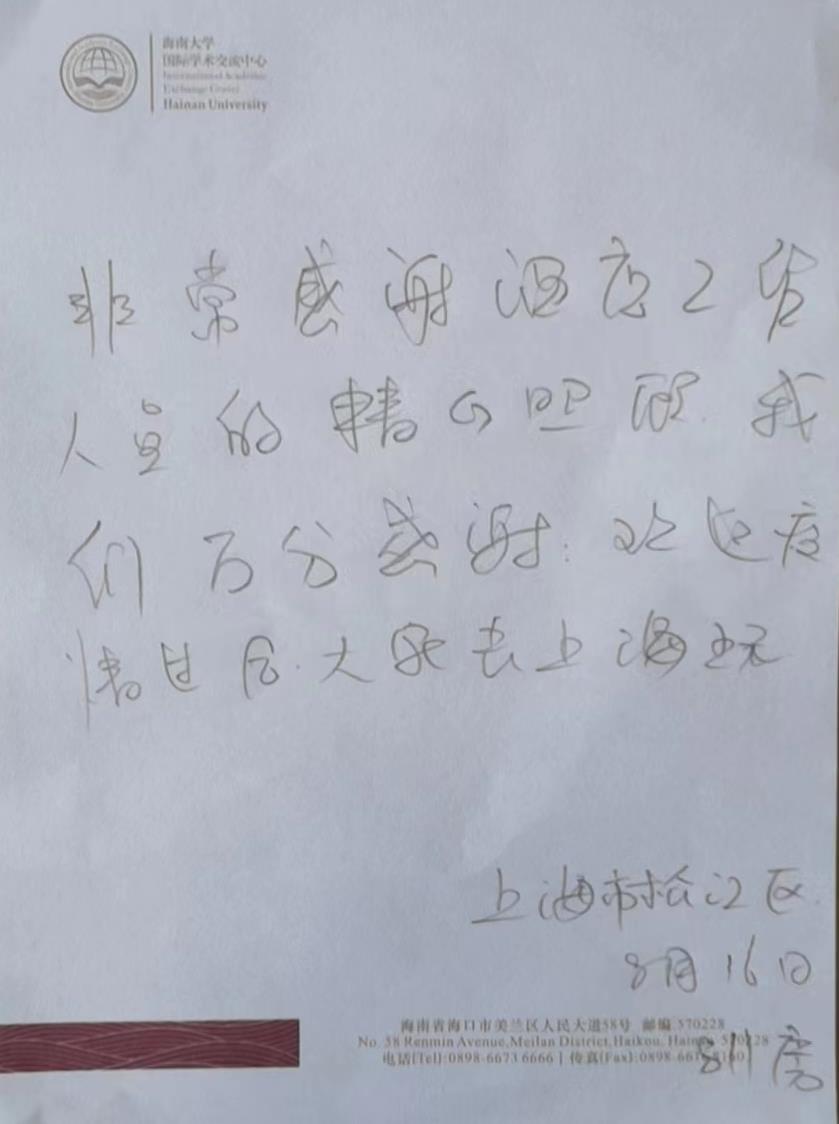 海南大学
国际学术交流中心
International Academic
Exchange Center
Hainan University
非常感谢酒店工务
人员的精心照顾.我
们万分感谢:欢迎疫
情过后.大家去上海玩
上海市松江区.
8月16日
8111房
海南省海口市美兰区人民大道58号 邮编:570228
No. 58 Renmin Avenue,Meilan District,Haikou, Hainan 570228
电话(Tel):0898-6673 6666 | 传真(Fax):0898-66